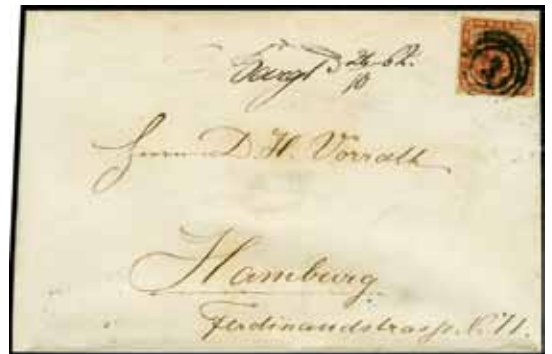 26-62.
10
Herrn D. H. Vorrath
Hamburg
Ferdinandstrasse No 71.